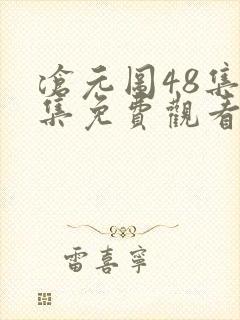 滄元圖48集
集免費觀看
雷喜寧